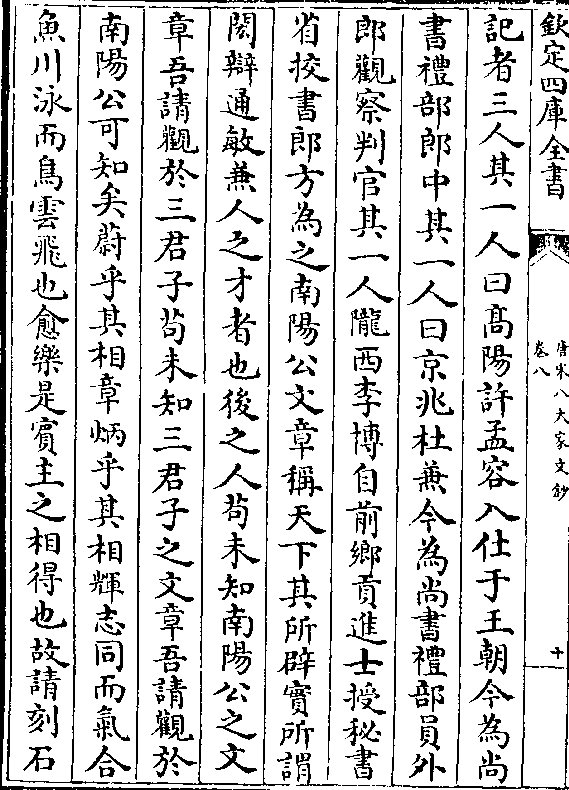 欽定四庫全書
唐宋八大家文鈔
卷八
十
記者三人其一人曰髙陽許孟容入仕于王朝今為尚
書禮部郎中其一人曰京兆杜兼今為尚書禮部員外
郎觀察判官其一人隴西李博自前鄉貢進士授秘書
省挍書郎方為之南陽公文章稱天下其所辟實所謂
閎辯通敏兼人之才者也後之人茍未知南陽公之文
章吾請觀於三君子茍未知三君子之文章吾請觀於
南陽公可知矣蔚乎其相章炳乎其相輝志同而氣合
魚川泳而鳥雲飛也愈樂是賔主之相得也故請刻石